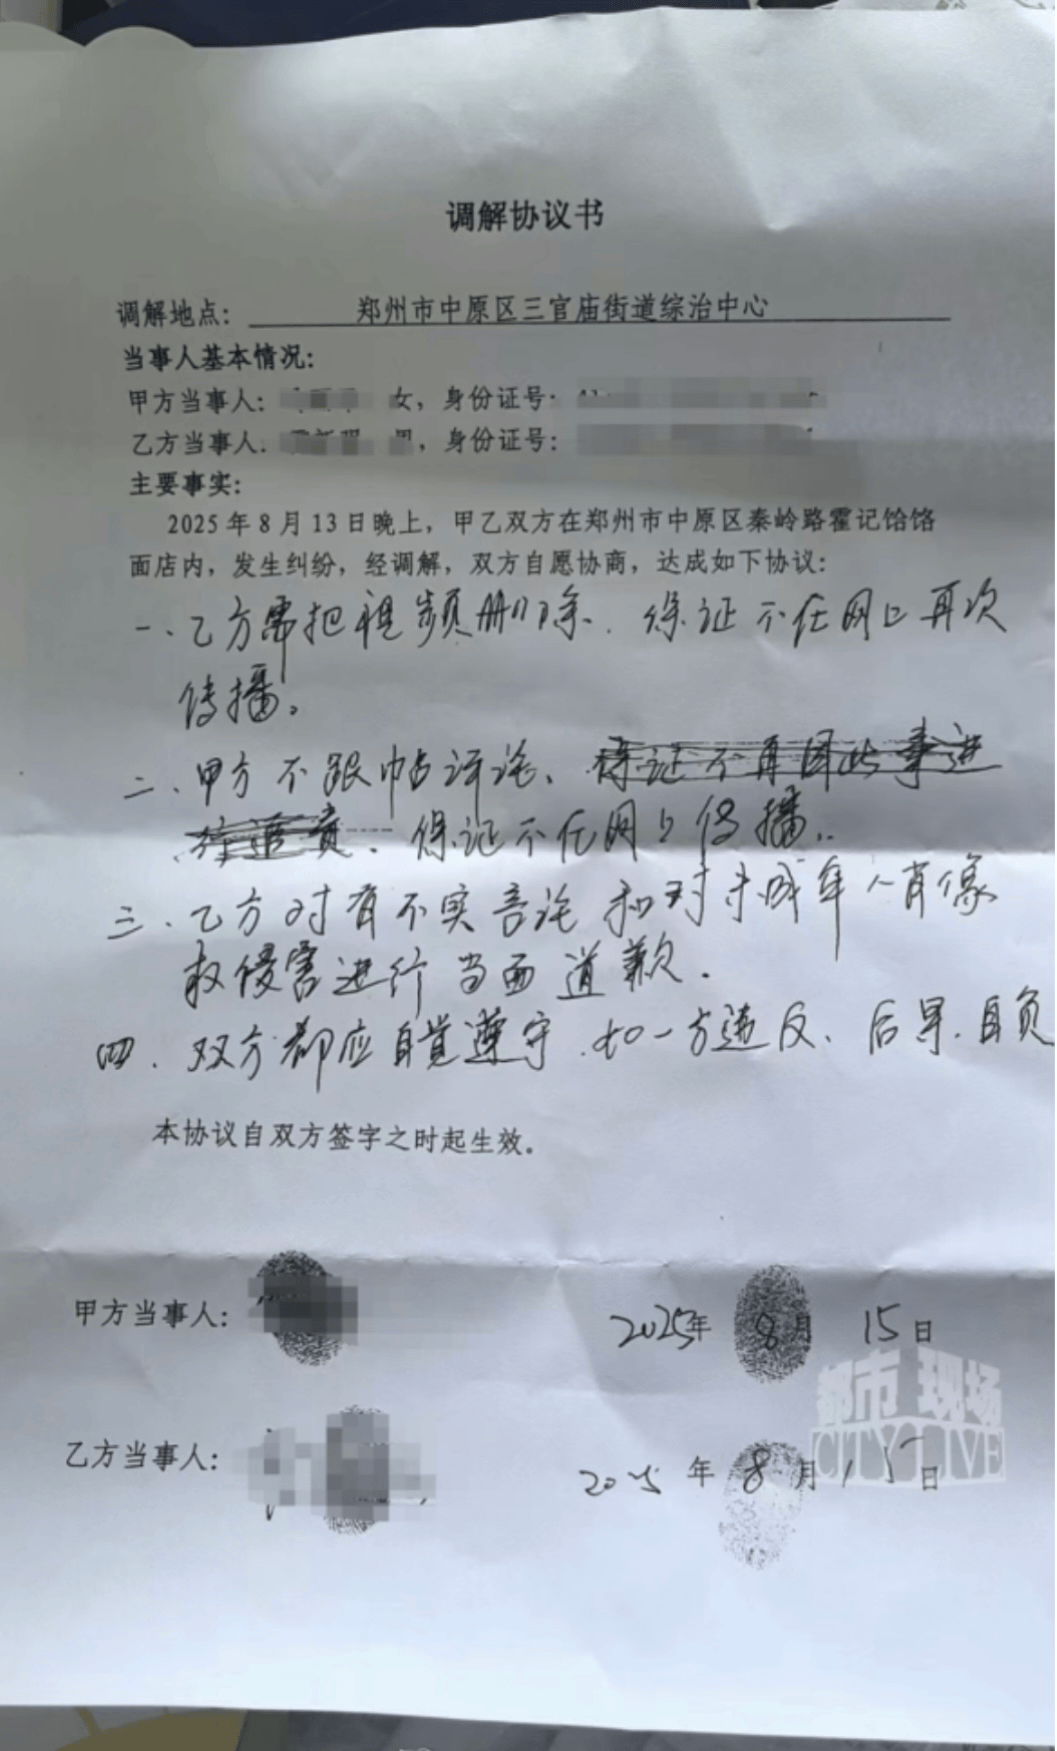 调解协议书
调解地点：郑州市中原区三官庙街道综治中心
当事人基本情况：
甲方当事人： 女，身份证号：
乙方当事人. 男，身份证号：
主要事实：
2025年8月13日晚上，甲乙双方在郑州市中原区秦岭路霍记饸饹
面店内，发生纠纷，经调解，双方自愿协商，达成如下协议：
一、乙方需把视频删除、保证不在网上再次
传播。
二、甲方不跟帖评论、保证不再因此事进
行追责、保证不在网上传播。
三、乙方对有不实言论和对未成年人肖像
权侵害进行当面道歉.
四、双方都应自觉遵守.如一方违反、后果自负
本协议自双方签字之时起生效。
甲方当事人： 2025年8月15日
乙方当事人： 2025年8月15日
都市现场
CITYLIVE